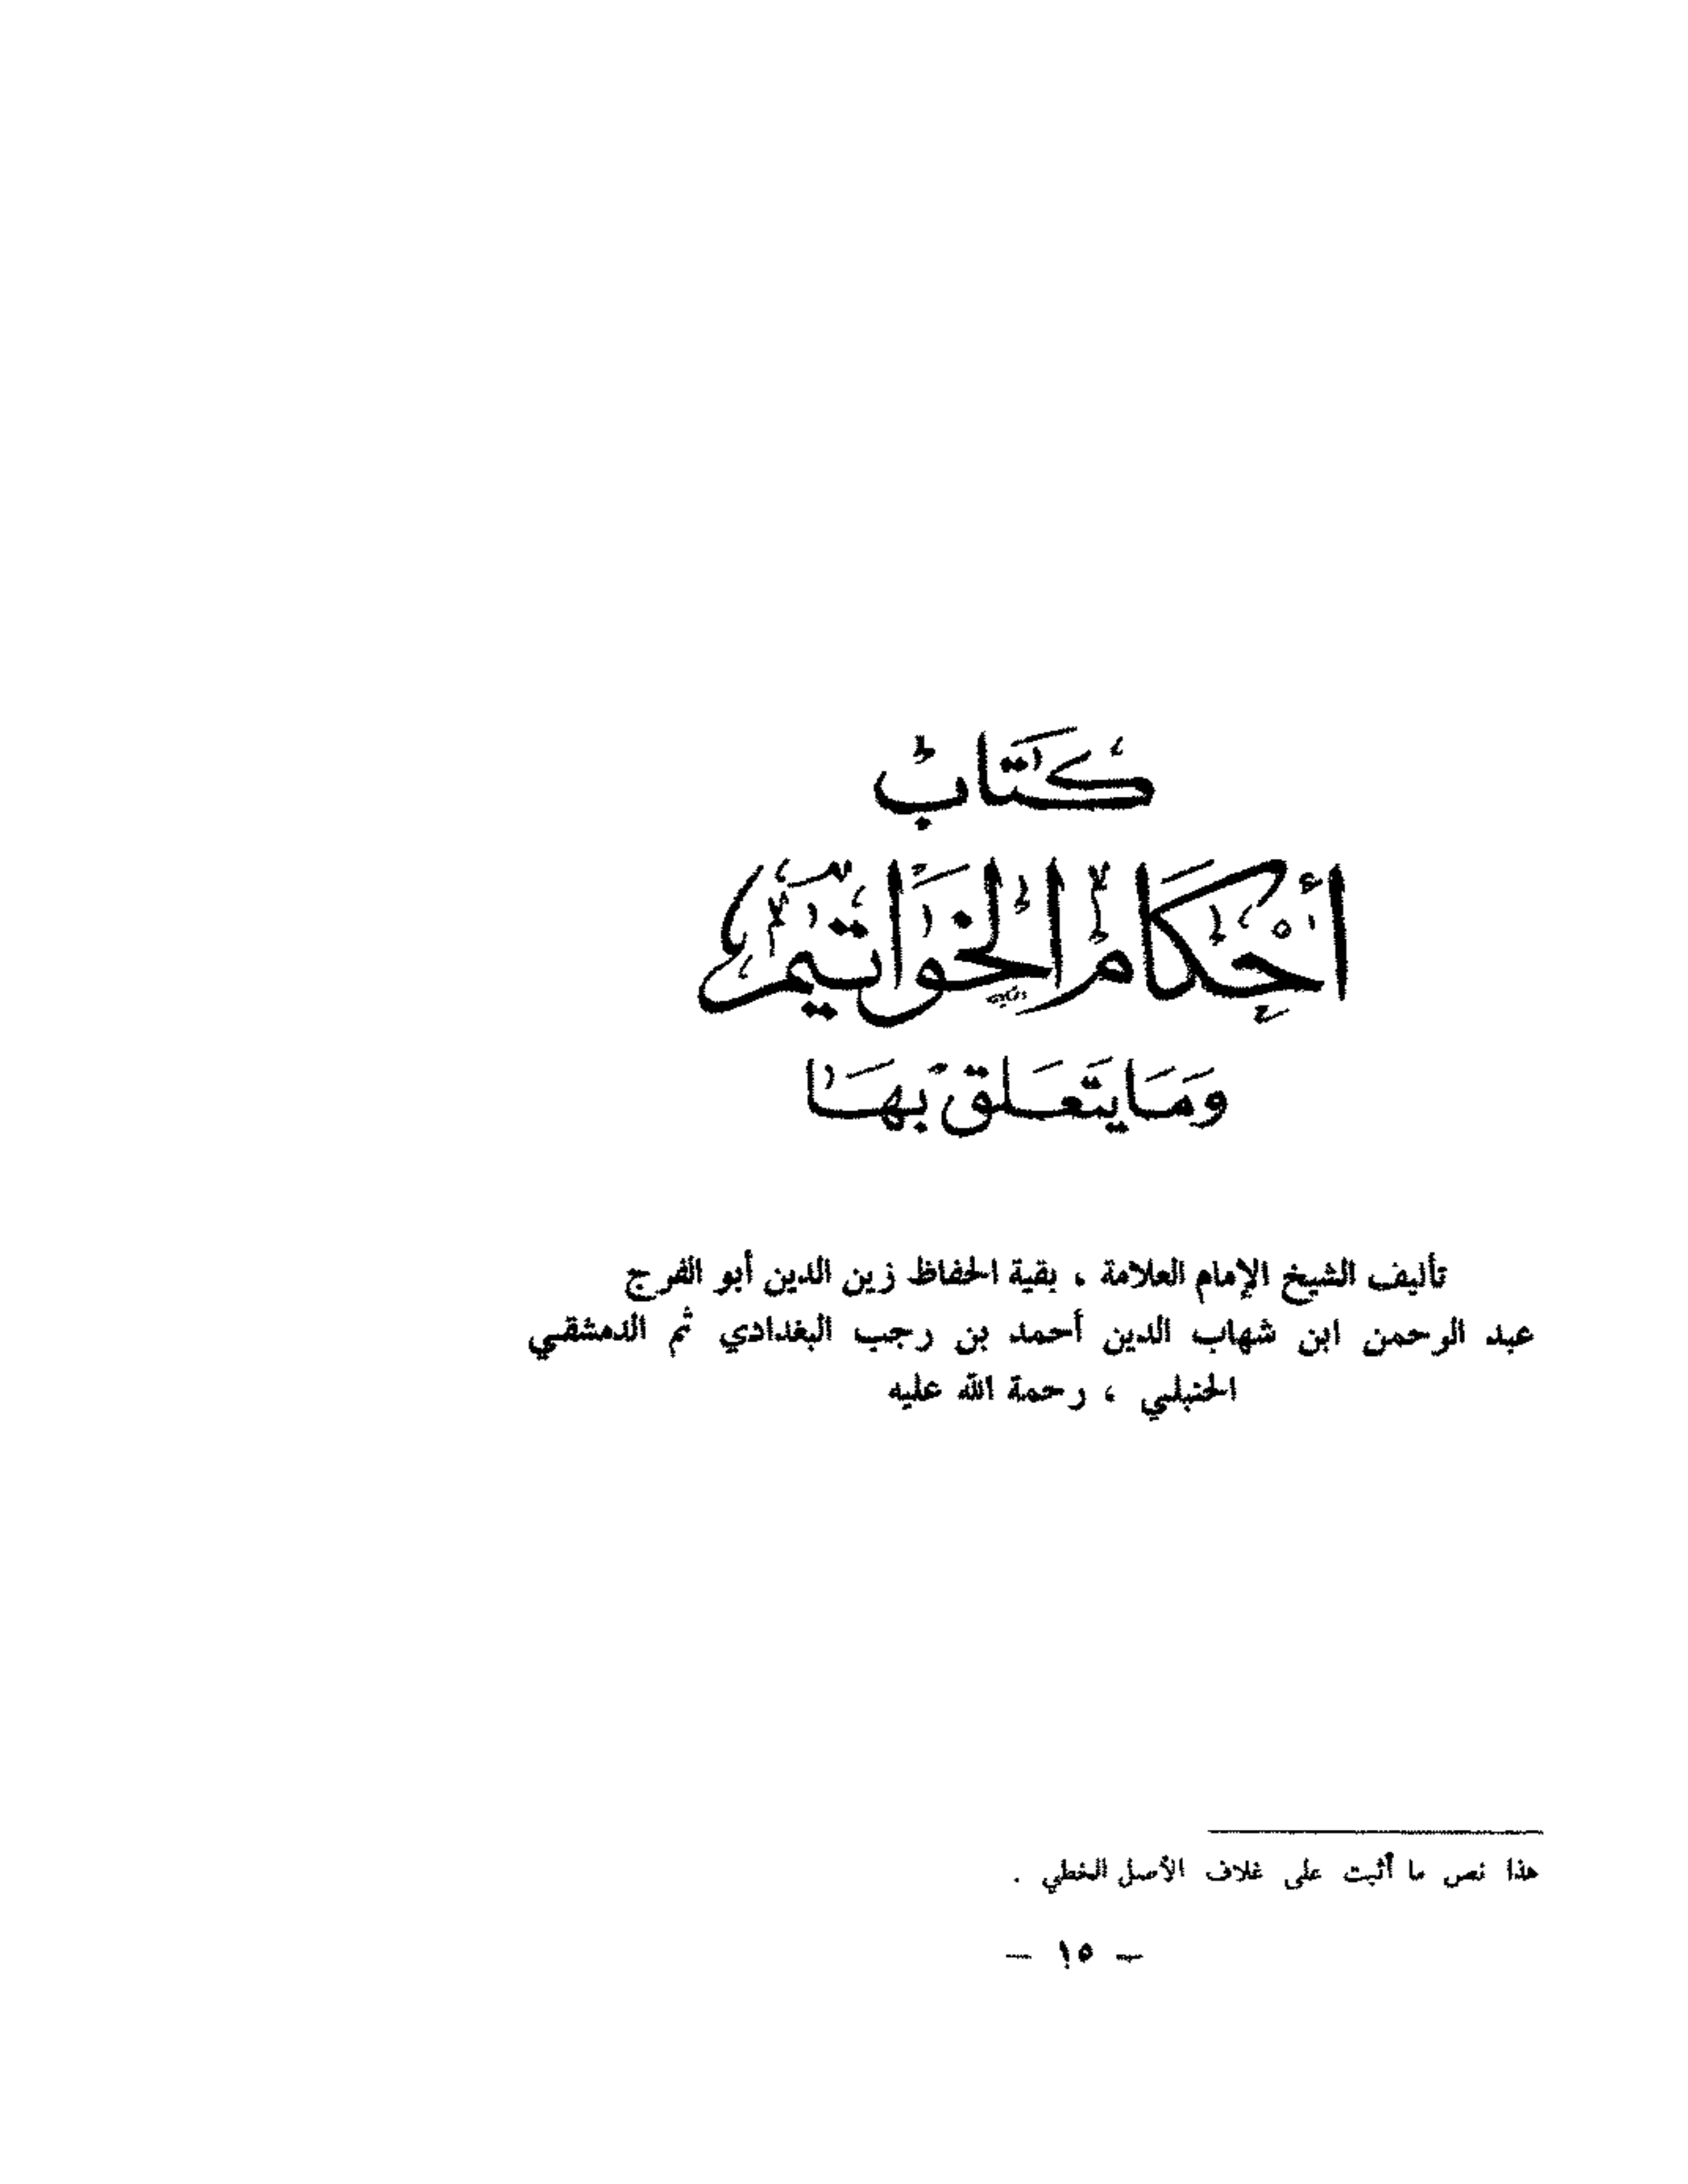 كتاب
أحكام الخواتيم
وما يتعلق بها
تأليف الشيخ الإمام العلامة ، بقية الحفاظ زين الدين أبو الفرج
عبد الرحمن ابن شهاب الدين أحمد بن رجب البغدادي ثم الدمشقي
الحنبلي ، رحمة الله عليه
هذا نص ما أثبت على غلاف الأصل الخطي .
– ١٥ –